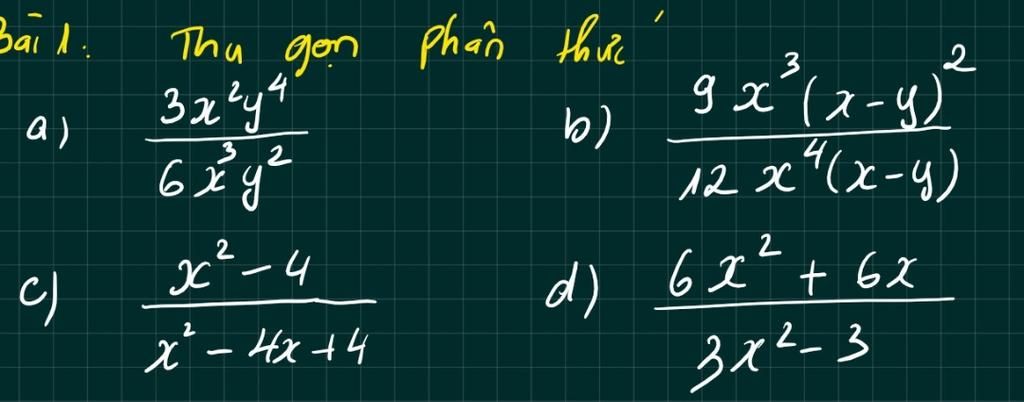 Bài 1: Thu gọn phân thức
a) 3x²y⁴ / 6x³y² b) 9x³(x-y)² / 12x⁴(x-y)
c) x²-4 / x²-4x+4 d) 6x²+6x / 3x²-3